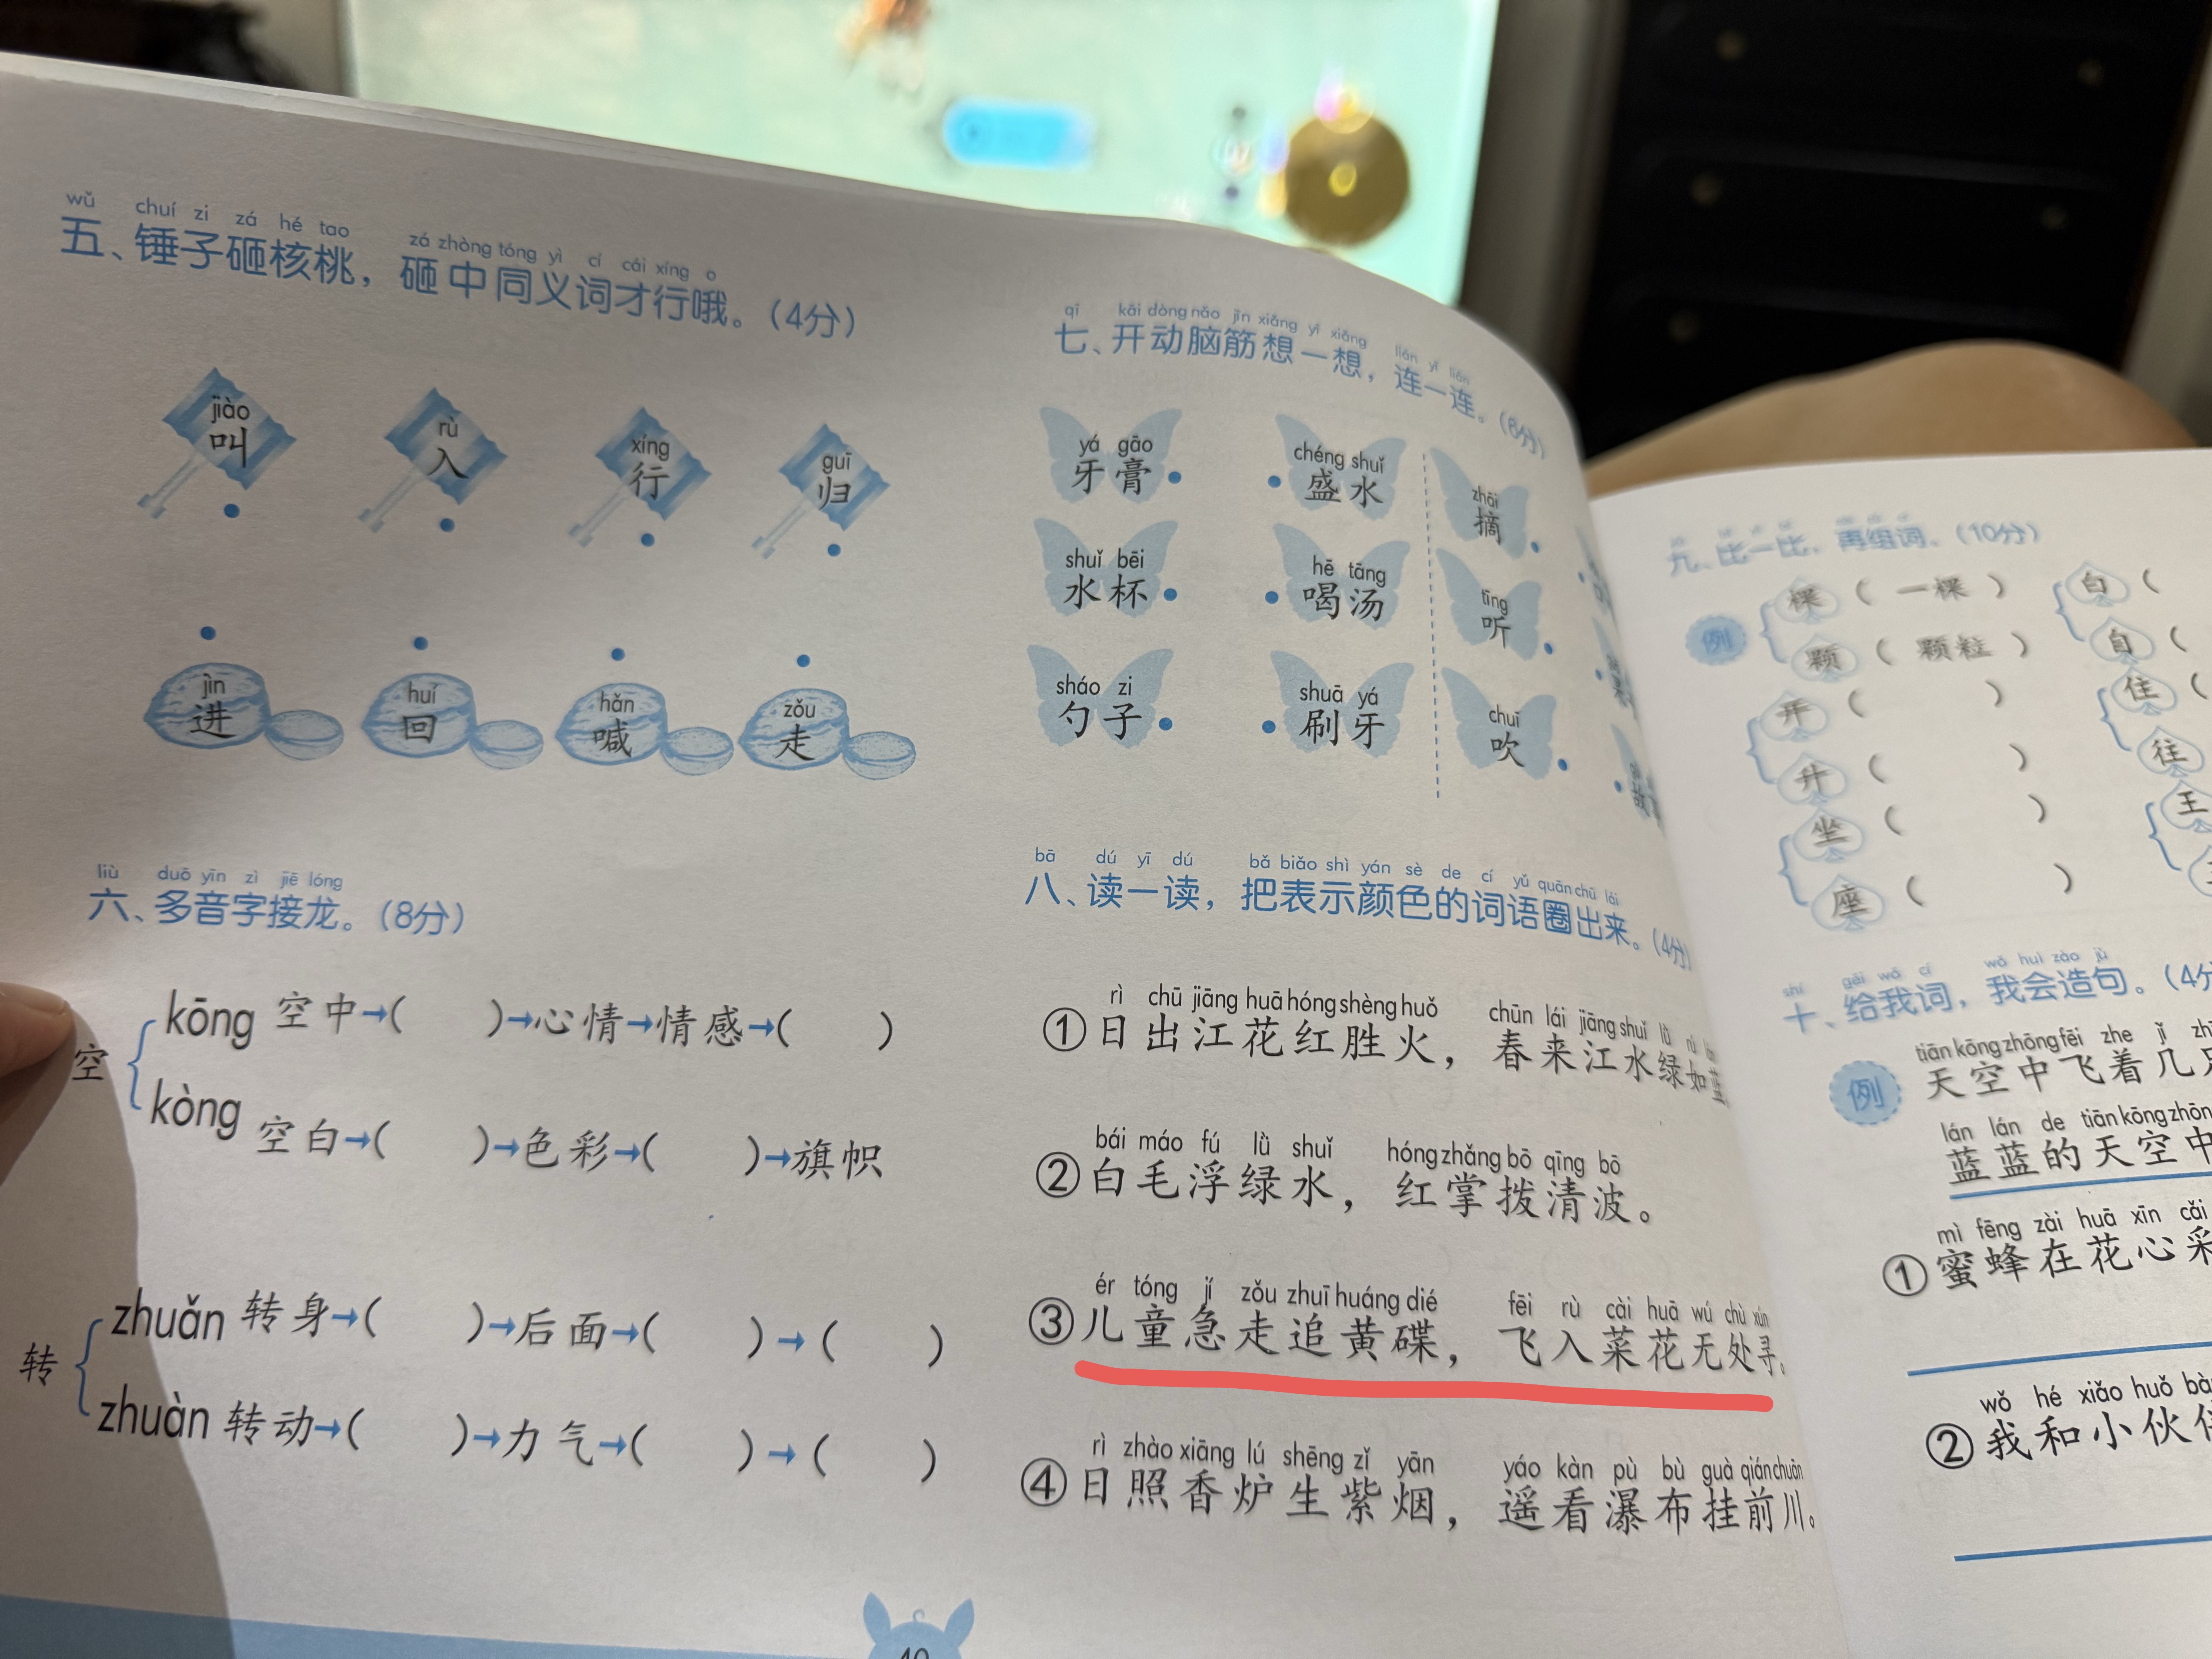 wǔ chuí zi zá hé tao zá zhòng tóng yì cí cái xíng o
五、锤子砸核桃，砸中同义词才行哦。（4分）
jiào rù xíng guī
叫 入 行 归
jìn huí hǎn zǒu
进 回 喊 走
liù duō yīn zì jiē lóng
六、多音字接龙。（8分）
空
kōng 空中→（ ）→心情→情感→（ ）
kòng 空白→（ ）→色彩→（ ）→旗帜
转
zhuǎn 转身→（ ）→后面→（ ）→（ ）
zhuàn 转动→（ ）→力气→（ ）→（ ）
qī kāi dòng nǎo jīn xiǎng yi xiǎng lián yi lián
七、开动脑筋想一想，连一连。（8分）
yá gāo chéng shuǐ zhāi
牙膏 盛水 摘
shuǐ bēi hē tāng tīng
水杯 喝汤 听
sháo zi shuā yá chuī
勺子 刷牙 吹
bā dú yī dú bǎ biǎo shì yán sè de cí yǔ quān chū lái
八、读一读，把表示颜色的词语圈出来。（4分）
rì chū jiāng huā hóng shèng huǒ chūn lái jiāng shuǐ lǜ rú
①日出江花红胜火，春来江水绿如蓝
bái máo fú lǜ shuǐ hóng zhǎng bō qīng bō
②白毛浮绿水，红掌拨清波。
ér tóng jí zǒu zhuī huáng dié fēi rù cài huā wú chù xún
③儿童急走追黄碟，飞入菜花无处寻。
rì zhào xiāng lú shēng zǐ yān yáo kàn pù bù guà qián chuān
④日照香炉生紫烟，遥看瀑布挂前川。
九、比一比，再组词。（10分）
例 棵（一棵） 白（
颗（颗粒） 自（
开（ ） 住（
升（ ） 往
坐（ ） 王
座（ ）
shí gěi wǒ cí wǒ huì zào jù
十、给我词，我会造句。（4分
例
tiān kōng zhōng fēi zhe jǐ
天空中飞着几
lán lán de tiān kōng zhōn
蓝蓝的天空中
mì fēng zài huā xīn cǎi
①蜜蜂在花心采
wǒ hé xiǎo huǒ bà
②我和小伙